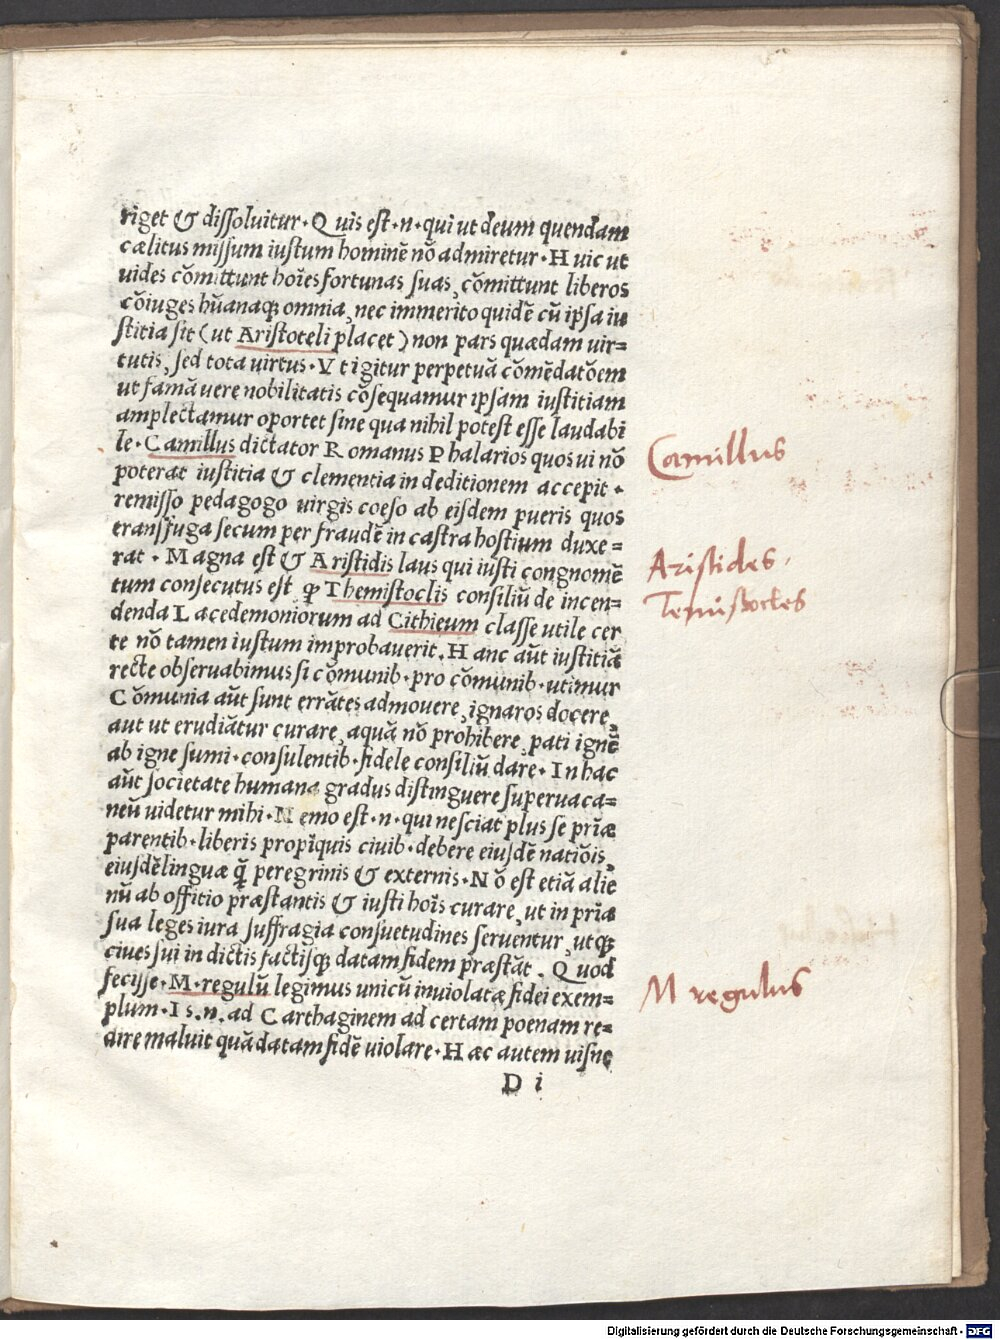 riget & dissoluitur · Quis est · n · qui ut deum quendam
cælitus missum iustum hominē nō admiretur · Huic ut
uides cōmittunt hoīes fortunas suas, cōmittunt liberos
cōiuges hūanaqꝫ omnia, nec immerito quidē cū ipsa iu
stitia sit (ut Aristoteli placet) non pars quædam uir=
tutis, sed tota uirtus · Vt igitur perpetuā cōmēdatōem
ut famā uere nobilitatis cōsequamur ipsam iustitiam
amplectamur oportet sine qua nihil potest esse laudabi
le · Camillus dictator Romanus Phalarios quos ui nō
poterat iustitia & clementia in deditionem accepit ·
remisso pedagogo uirgis coeso ab eisdem pueris quos
transfuga secum per fraudē in castra hostium duxe=
rat · Magna est & Aristidis laus qui iusti congnomē
tum consecutus est ꝙ Themistoclis consiliū de incen=
denda Lacedemoniorum ad Cithieum classe utile cer
te nō tamen iustum improbauerit. Hanc aūt iustitiā
recte obseruabimus si cōmunib · pro cōmunib · utimur
Cōmunia aūt sunt errātes admouere, ignaros docere,
aut ut erudiātur curare, aquā nō prohibere, pati ignē
ab igne sumi · consulentib · fidele consiliū dare · In hac
aūt societate humana gradus distinguere superuaca=
neū uidetur mihi · Nemo est · n · qui nesciat plus se priæ
parentib · liberis propīquis ciuib · debere eiusdē natiōis,
eiusdē linguæ ꝙ̄ peregrinis & externis · Nō est etiā alie
nū ab offitio præstantis & iusti hoīs curare, ut in pria
sua leges iura suffragia consuetudines seruentur, utqꝫ
ciues sui in dictis factisqꝫ datam fidem præstāt . Quod
fecisse · M · regulū legimus unicū inuiolatæ fidei exem=
plum · Is . n . ad Carthaginem ad certam poenam re=
dire maluit quā datam fidē uiolare · Hæc autem uisne
D i
Camillus
Aristides ·
Temistocles
M regulus
Digitalisierung gefördert durch die Deutsche Forschungsgemeinschaft - DFG